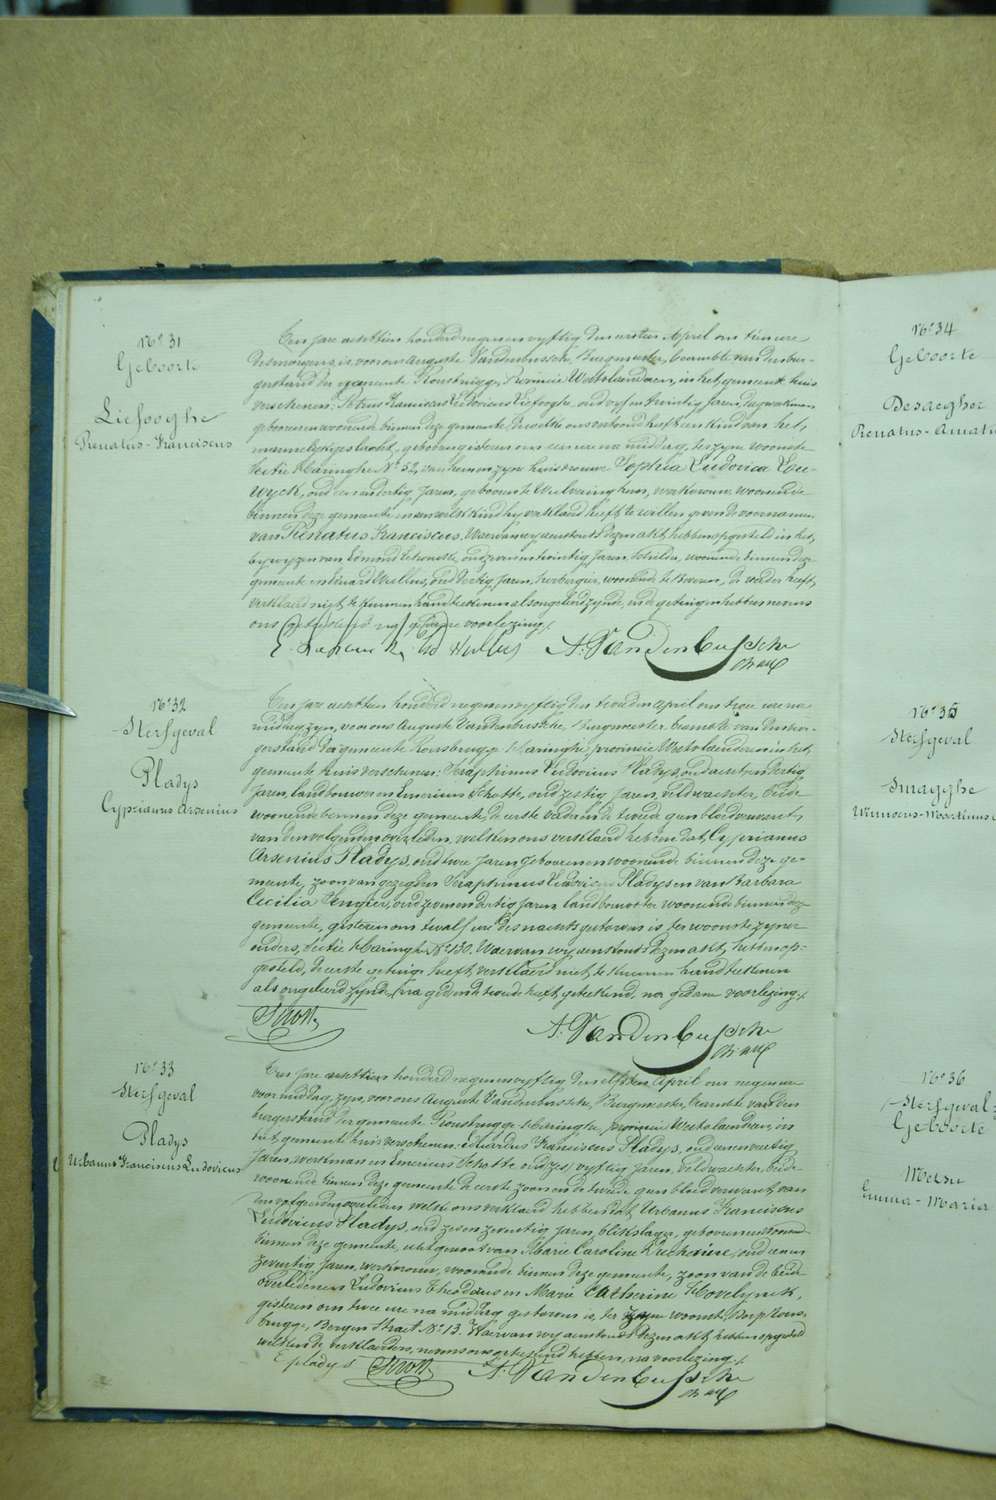 N° 31
Geboorte
Liefooghe
Renatus-Franciscus
Ten jare achttien honderd negenenvyftig den eersten April om tien ure
desmorgens, is voor ons Auguste Vandenbussche, Burgmeester, beambte van den bur-
gerstand der gemeente Rousbrugge, Provincie Westvlaenderen, in het gemeente huis
verschenen: Petrus Franciscus Ludovicus Liefooghe, oud vyfentwintig Jaren, dagwakman
geboren en woonende binnen deze gemeente, dewelke ons vertoond heeft een kind van het
mannelyk geslacht, geboren gisteren om een ure na middag, ter zyne woonste
sectie Haringhe N° 52, van hem en zyne huisvrouwe Sophia Ludovica Lou-
wyck, oud een en dertig Jaren, geboren te Wulveringhem, werkvrouw, woonende
binnen deze gemeente en aen welk kind hy verklaerd heeft te willen geven de voornamen
van Renatus Franciscus. Waervan wy aenstonds dezen akt hebben opgesteld in het
bywyzen van Edmond oud zevenentwintig Jaren, schilder, woonende binnen deze
gemeente en Eduard Hullus, oud veertig Jaren, herbergier, woonende te de vader heeft
verklaerd niet te kunnen handteekenen als ongeleerd zynde, en de getuigen hebben nevens
ons geteekend na gedane voorlezing.
Ed Hullus A. Vandenbussche
N° 32
Sterfgeval
Pladys
Cyprianus Arsenius
Ten jare achttien honderd negenenvyftig den tienden April om twee ure na
middag, zyn, voor ons Auguste Vandenbussche, Burgmeester, beambte van den bur-
gerstand der gemeente Rousbrugge Haringhe, provincie Westvlaenderen in het
gemeente huis verschenen: Seraphinus Ludovicus Pladys, oud achtendertig
Jaren, landbouwer en Emericus Schotte, oud zestig Jaren, veldwachter, beide
woonende binnen deze gemeente, de eerste vader en de tweede gen bloedverwant
van den volgenden overleden, welke ons verklaerd hebben dat, Cyprianus
Arsenius Pladys, oud twee Jaren geboren en woonende binnen deze ge-
meente, zoon van gezegden Seraphinus Ludovicus Pladys en van Barbara
Cecilia oud zeven en dertig Jaren landbouwster woonende binnen deze
gemeente, gisteren om twalf ure des nachts gestorven is, ter woonste zyner
ouders, sectie Haringhe N° 130. Waervan wy aenstonds dezen akt hebben op-
gesteld, de eerste getuige heeft verklaerd niet te kunnen handteekenen
als ongeleerd zynde, en de tweede heeft geteekend, na gedane voorlezing.
A. Vandenbussche
N° 33
Sterfgeval
Pladys
Urbanus Franciscus Ludovicus
Ten jare achttien honderd negenenvyftig den elfsten April om negen ure
voormiddag, zyn, voor ons Auguste Vandenbussche, Burgmeester, beambte van den
burgerstand der gemeente Rousbrugge Haringhe, provincie Westvlaenderen, in
het gemeente huis verschenen: Eduardus Franciscus Pladys, oud eenenveertig
Jaren, werkman en Emericus Schotte oud zes vyftig Jaren, veldwachter, beide
woonende binnen deze gemeente de eerste zoon en de tweede gen bloedverwant, van
den volgenden overleden welke ons verklaerd hebben dat, Urbanus Franciscus
Ludovicus Pladys, oud zes en zeventig Jaren, blikslager, geboren en woonende
binnen deze gemeente, echtgenoot van Marie Caroline oud een en
zeventig Jaren, werkvrouw, woonende binnen deze gemeente, zoon van de beide
overledenen Ludovicus Theodorus en Marie Catherine Hovelynck,
gisteren om twee ure na middag gestorven is, ter zyne woonst, Dorp Rous-
brugge, Bergen Straet N° 13. Waervan wy aenstonds dezen akt hebben opgesteld
welken de verklaerders, nevens ons onderteekend hebben, na voorlezing.
E pladys A. Vandenbussche
N° 34
Geboorte
N° 35
Sterfgeval
N° 36
Sterfgeval
Geboorte
Emma-Maria